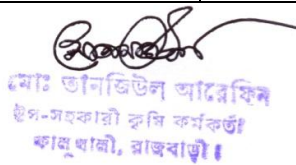 মোঃ তানজিউল আরেফিন
উপ-সহকারী কৃষি কর্মকর্তা
কালুখালী, রাজবাড়ী।